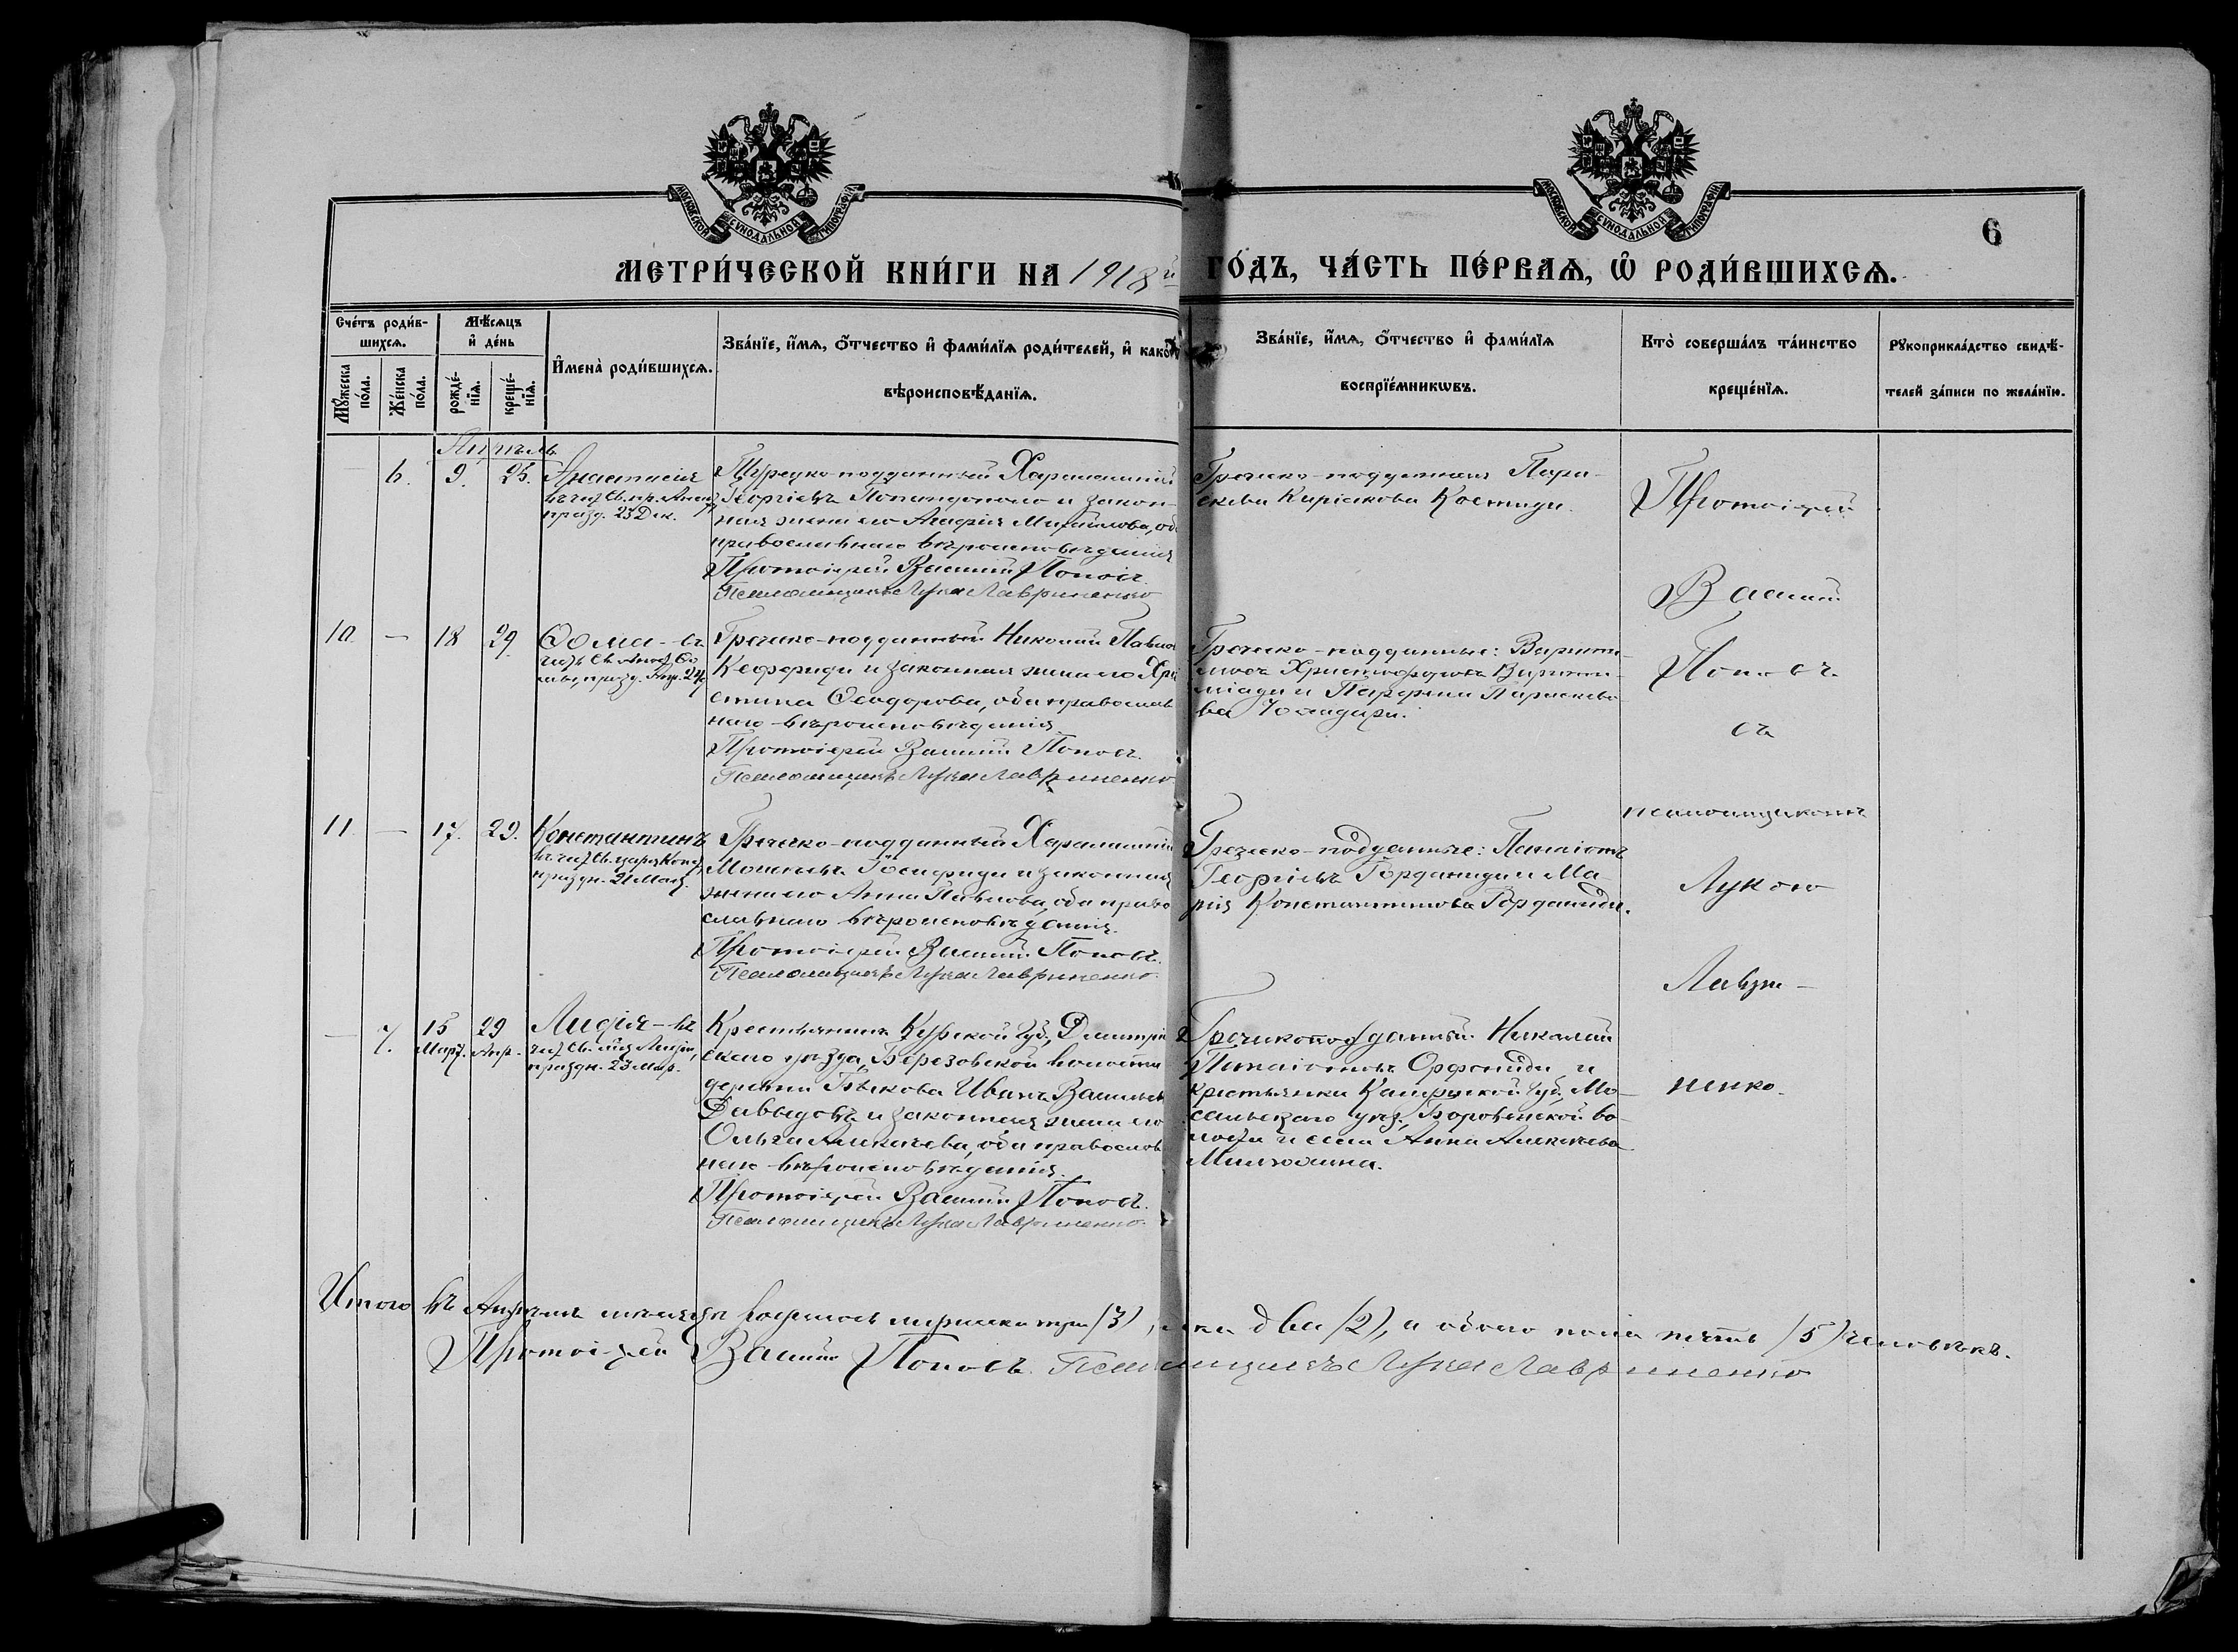 МОСКОВСКОЙ СУНОДАЛЬНОЙ ТИПОГРАФІИ
МОСКОВСКОЙ СУНОДАЛЬНОЙ ТИПОГРАФІИ
6
МЕТРИ́ЧЕСКОЙ КНИ́ГИ НА 1918й ГО́ДЪ, ЧА́СТЬ ПЕ́РВАѦ, Ѡ҆ РОДИ́ВШИХСѦ.
Сче́тъ роди́в-
шихсѧ.
Мꙋ́жеска по́ла.
Же́нска по́ла.
Мѣ́сѧцъ
и҆ де́нь
рожде́-нїѧ.
креще́-нїѧ.
И҆мена̀ роди́вшихсѧ.
Зва́нїе, и҆́мѧ, ѻ҆́тчество и҆ фами́лїѧ роди́телей, и҆ како́гѡ
вѣроисповѣ́данїѧ.
Зва́нїе, и҆́мѧ, ѻ҆́тчество и҆ фами́лїѧ
воспрїе́мникѡвъ.
Кто̀ соверша́лъ та́инство
креще́нїѧ.
Рꙋкоприкла́дство свидѣ́-
телей за́писи по жела́нїю.
Апрѣль
6. 9. 25. Анастасія
празд. 23 Дек.
Турецко-подданный Харалампій
Георгіевъ Попандопуло и закон-
ная жена его Агафія Михайлова, оба
православнаго вѣроисповѣданія
Протоіерей Василій Поповъ.
Псаломщикъ Лука Лавриненко
Греческо-подданная Пара-
скева Киріакова Костиди.
Протоіерей
Василій
Поповъ
съ
псаломщикомъ
Лукою
Лаври-
ненко.
10. — 18 29 Ѳома - въ
честь Св. Апост. Ѳо
мы,
Греческо-подданный Николай Павлов
Кеффериди и законная жена его Хри
стина Ѳеодорова, оба православ
наго вѣроисповѣданія
Протоіерей Василій Поповъ.
Псаломщикъ Лука Лавриненко
Греческо-подданные:
Христофоровъ
11. — 17. 29. Константинъ
въ чест. Св. царя Конст.
праздн. 21 Мая.
Греческо-подданный Харалампій
Моисеевъ Іосифиди и законная
жена его Анна Павлова, оба право
славнаго вѣроисповѣданія.
Протоіерей Василій Поповъ.
Псаломщикъ Лука Лавриненко
Греческо-подданные: Панаіотъ
Георгіевъ Іорданиди и Ма-
рія Константинова Іорданиди.
— 7. 15 Март. 29 Апр. Лидія - въ
чест. Св. муч. Лидіи,
праздн. 23 Мар.
Крестьянинъ Курской губ., Дмитріев
скаго уѣзда, Березовской волости
деревни Быкова Иванъ Васильев
Давыдовъ и законная жена его
Ольга Алексѣева, оба православ
наго вѣроисповѣданія.
Протоіерей Василій Поповъ.
Псаломщикъ Лука Лавриненко
Грекоподданный Николай
Панаіотовъ Орфониди и
крестьянка Калужской губ., Мо-
сальскаго уѣз., во-
лости и села Анна Алексѣева
Итого въ Апрѣлѣ мѣсяцѣ родилось мужеска три (3), жен два (2), а обоего пола пять (5) человѣкъ.
Протоіерей Василій Поповъ. Псаломщикъ Лука Лавриненко